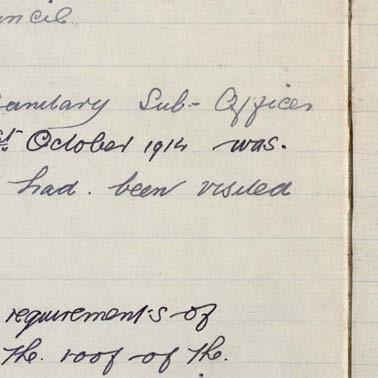 uncil.
Sanitary Sub-Officer
st. October 1914 was.
had. been visited
requirements of
the. roof of the.